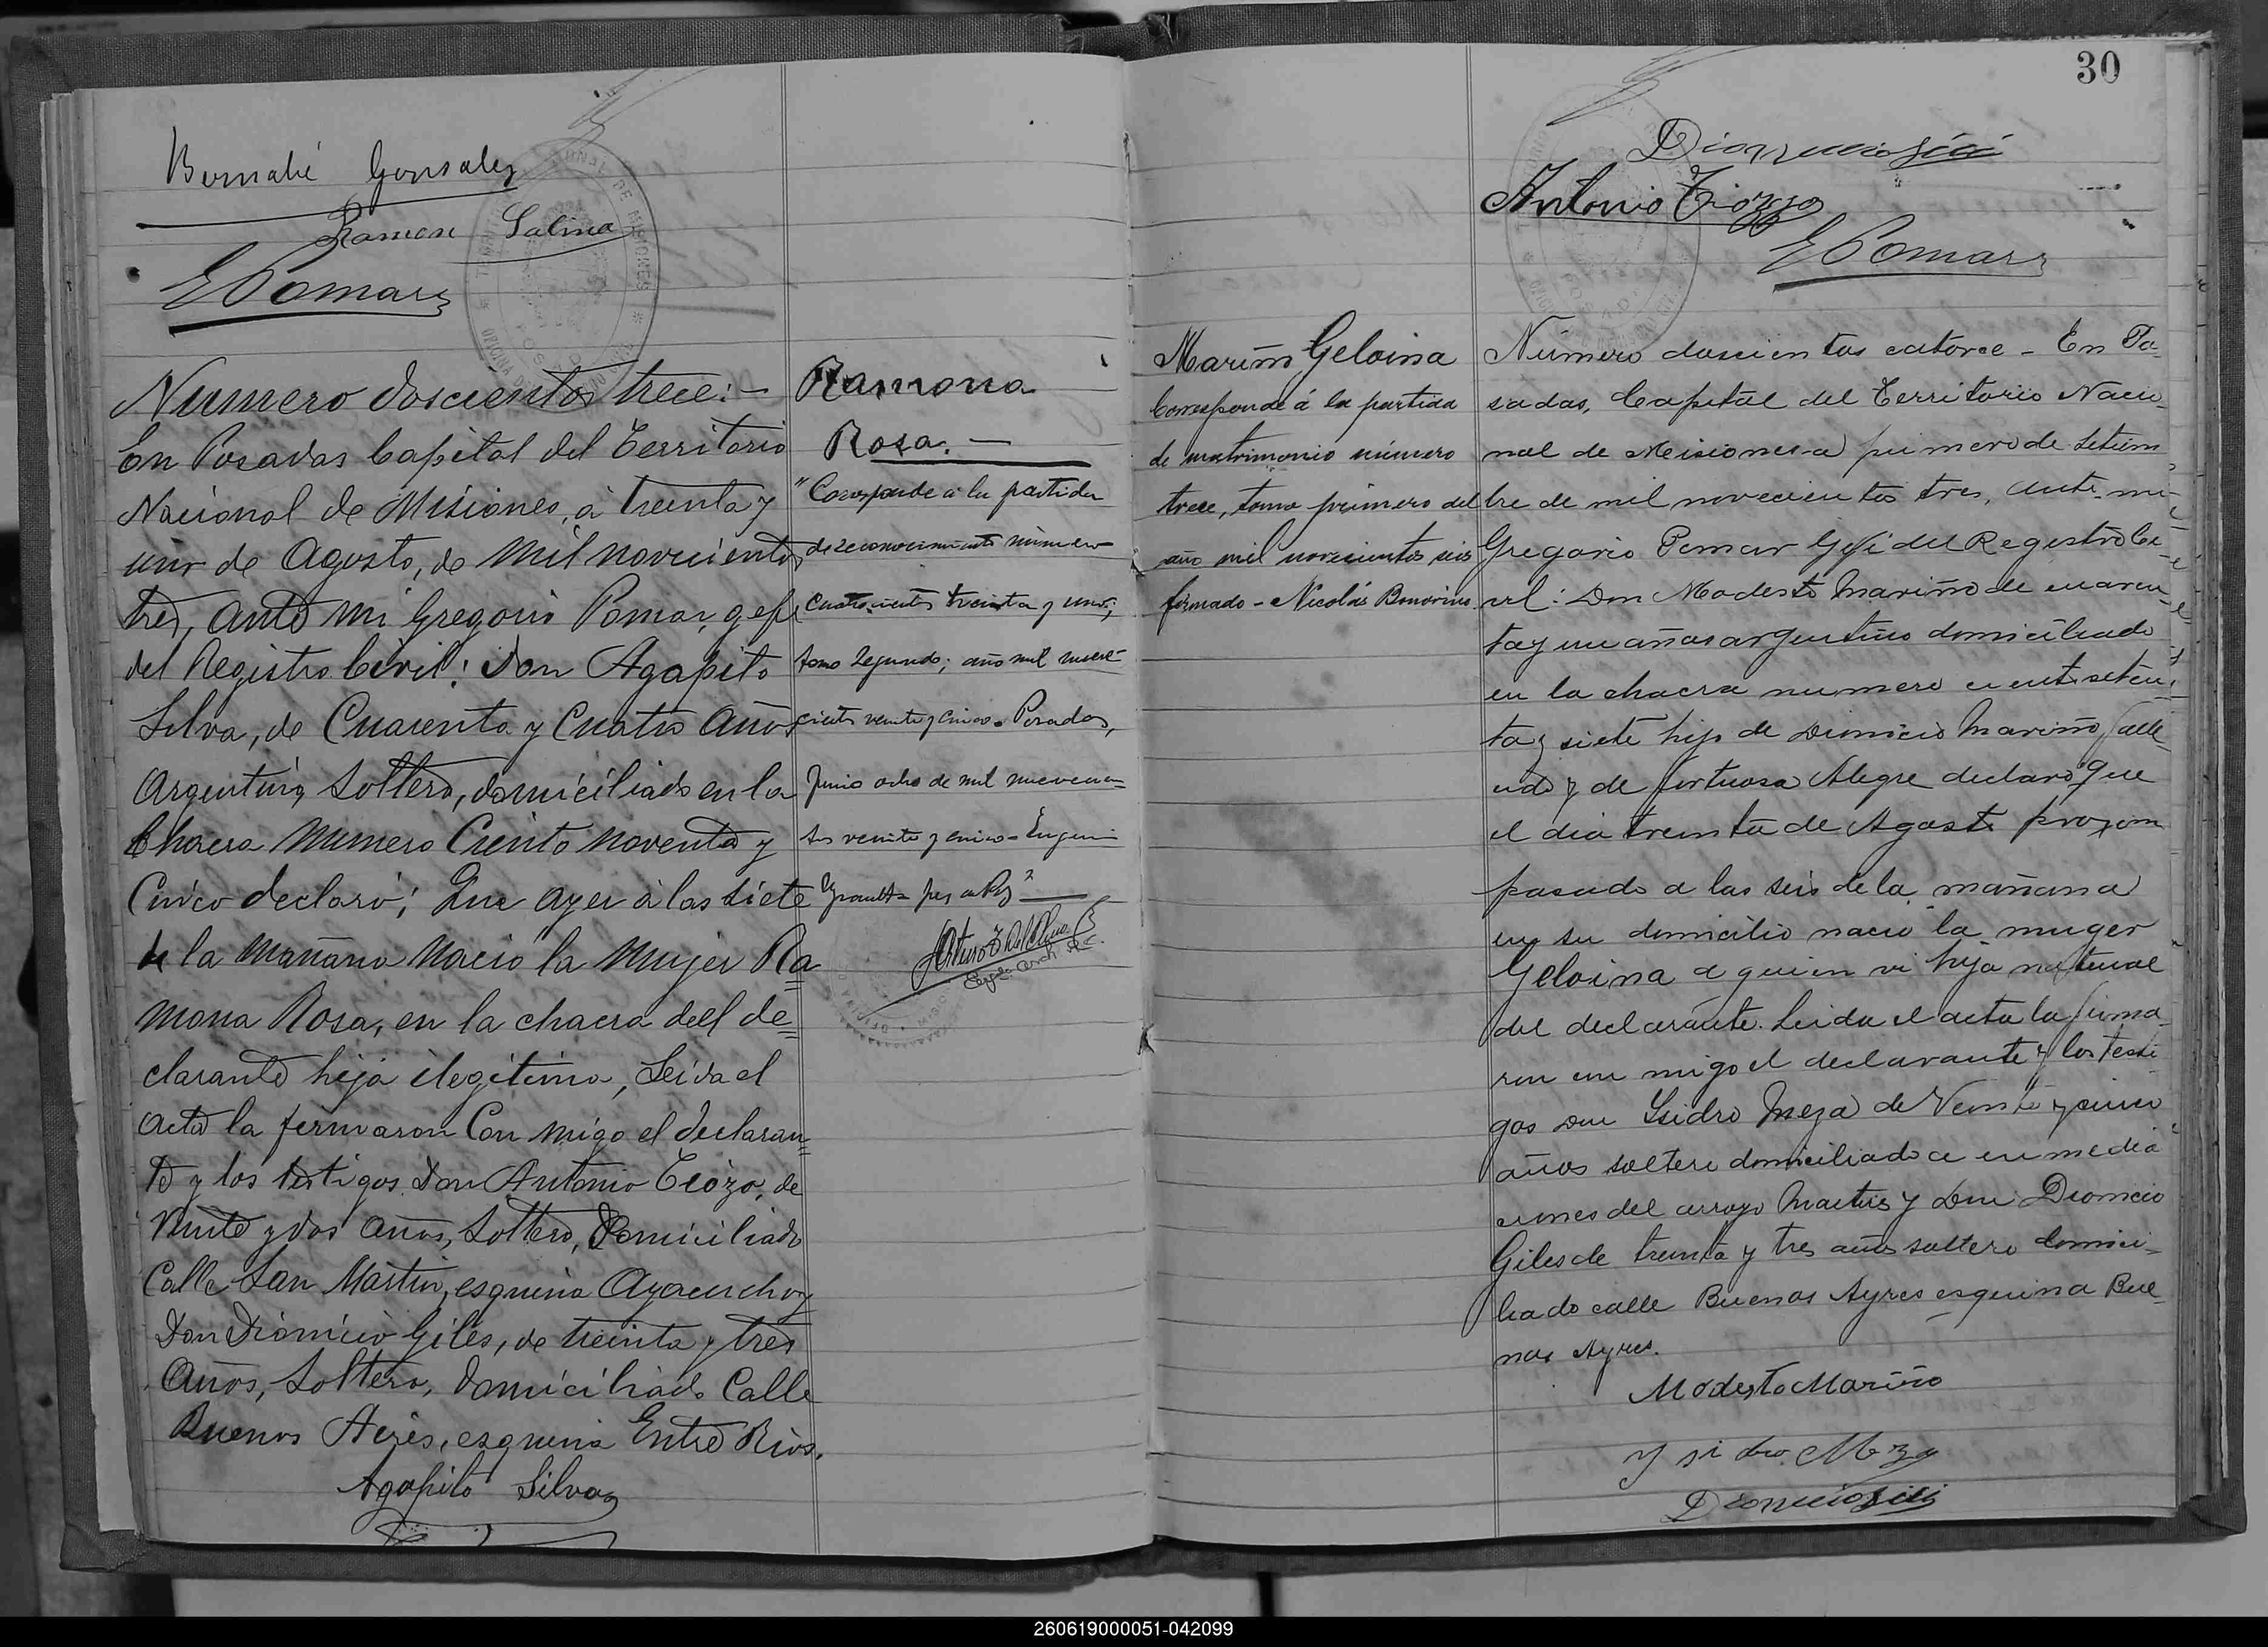 Bernabé Gonsalez
Ramon Salina
GPomar
Numero doscientos trece:-
En Posadas Capital del Territorio
Nacional de Misiones, á treinta y
uno de Agosto, de mil novecientos
tres, ante mi Gregorio Pomar, gefe
del Registro Civil: Don Agapito
Silva, de Cuarenta y Cuatro años
Argentino, soltero, domiciliado en la
Chacra Numero Ciento noventa y
Cinco declaró; Que ayer á las siete
de la mañana nació la mujer Ra=
mona Rosa, en la chacra del de=
clarante hija ilegitima, Leida el
acta la firmaron Con migo el declaran=
te y los testigos Don Antonio Tiozzo, de
veinte y dos años, Soltero, Domiciliado
Calle San Martin, esquina Ayacucho y
Don Dionicio Giles, de treinta y tres
años, Soltero, domiciliado Calle
Buenos Aires, esquina Entre Rios.
Agapito Silva
Ramona
Rosa.—
"Corresponde á la partida
de reconocimiento número
cuatrocientos treinta y uno;
tomo segundo; año mil nove-
cientos veinte y cinco. Posadas,
Junio ocho de mil novecien=
tos veinte y cinco - Eugenio
30
Antonio Tiozzo
GPomar
Mariño, Geloina
Corresponde á la partida
de matrimonio número
trece, tomo primero del
año mil novecientos seis
firmado - Nicolás Bonorino.
Número doscientos catorce - En Po-
sadas, Capital del Territorio Nacio-
nal de Misiones a primero de Setiem
bre de mil novecientos tres, ante mi
Gregorio Pomar Gefe del Registro Ci-
vil: Don Modesto Mariño de cuaren-
ta y un años argentino domiciliado
en la chacra numero ciento seten-
ta y siete hijo de Dionicio Mariño falle-
cido y de fortuosa Alegre declaró que
el dia treinta de Agosto proxom
pasado a las seis de la mañana
en su domicilio nació la muger
Geloina a quien vi hija natural
del declarante. Leida el acta la firma-
ron con migo el declarante y los testi
gos Don Ysidro Meza de Veinte y cinco
años soltero domiciliado a inmedia
ciones del arroyo Martires y Don Dionicio
Giles de treinta y tres años soltero domici-
liado calle Buenos Ayres esquina Bue-
nos Ayres.
Modesto Mariño
Ysidro. Meza
260619000051-042099